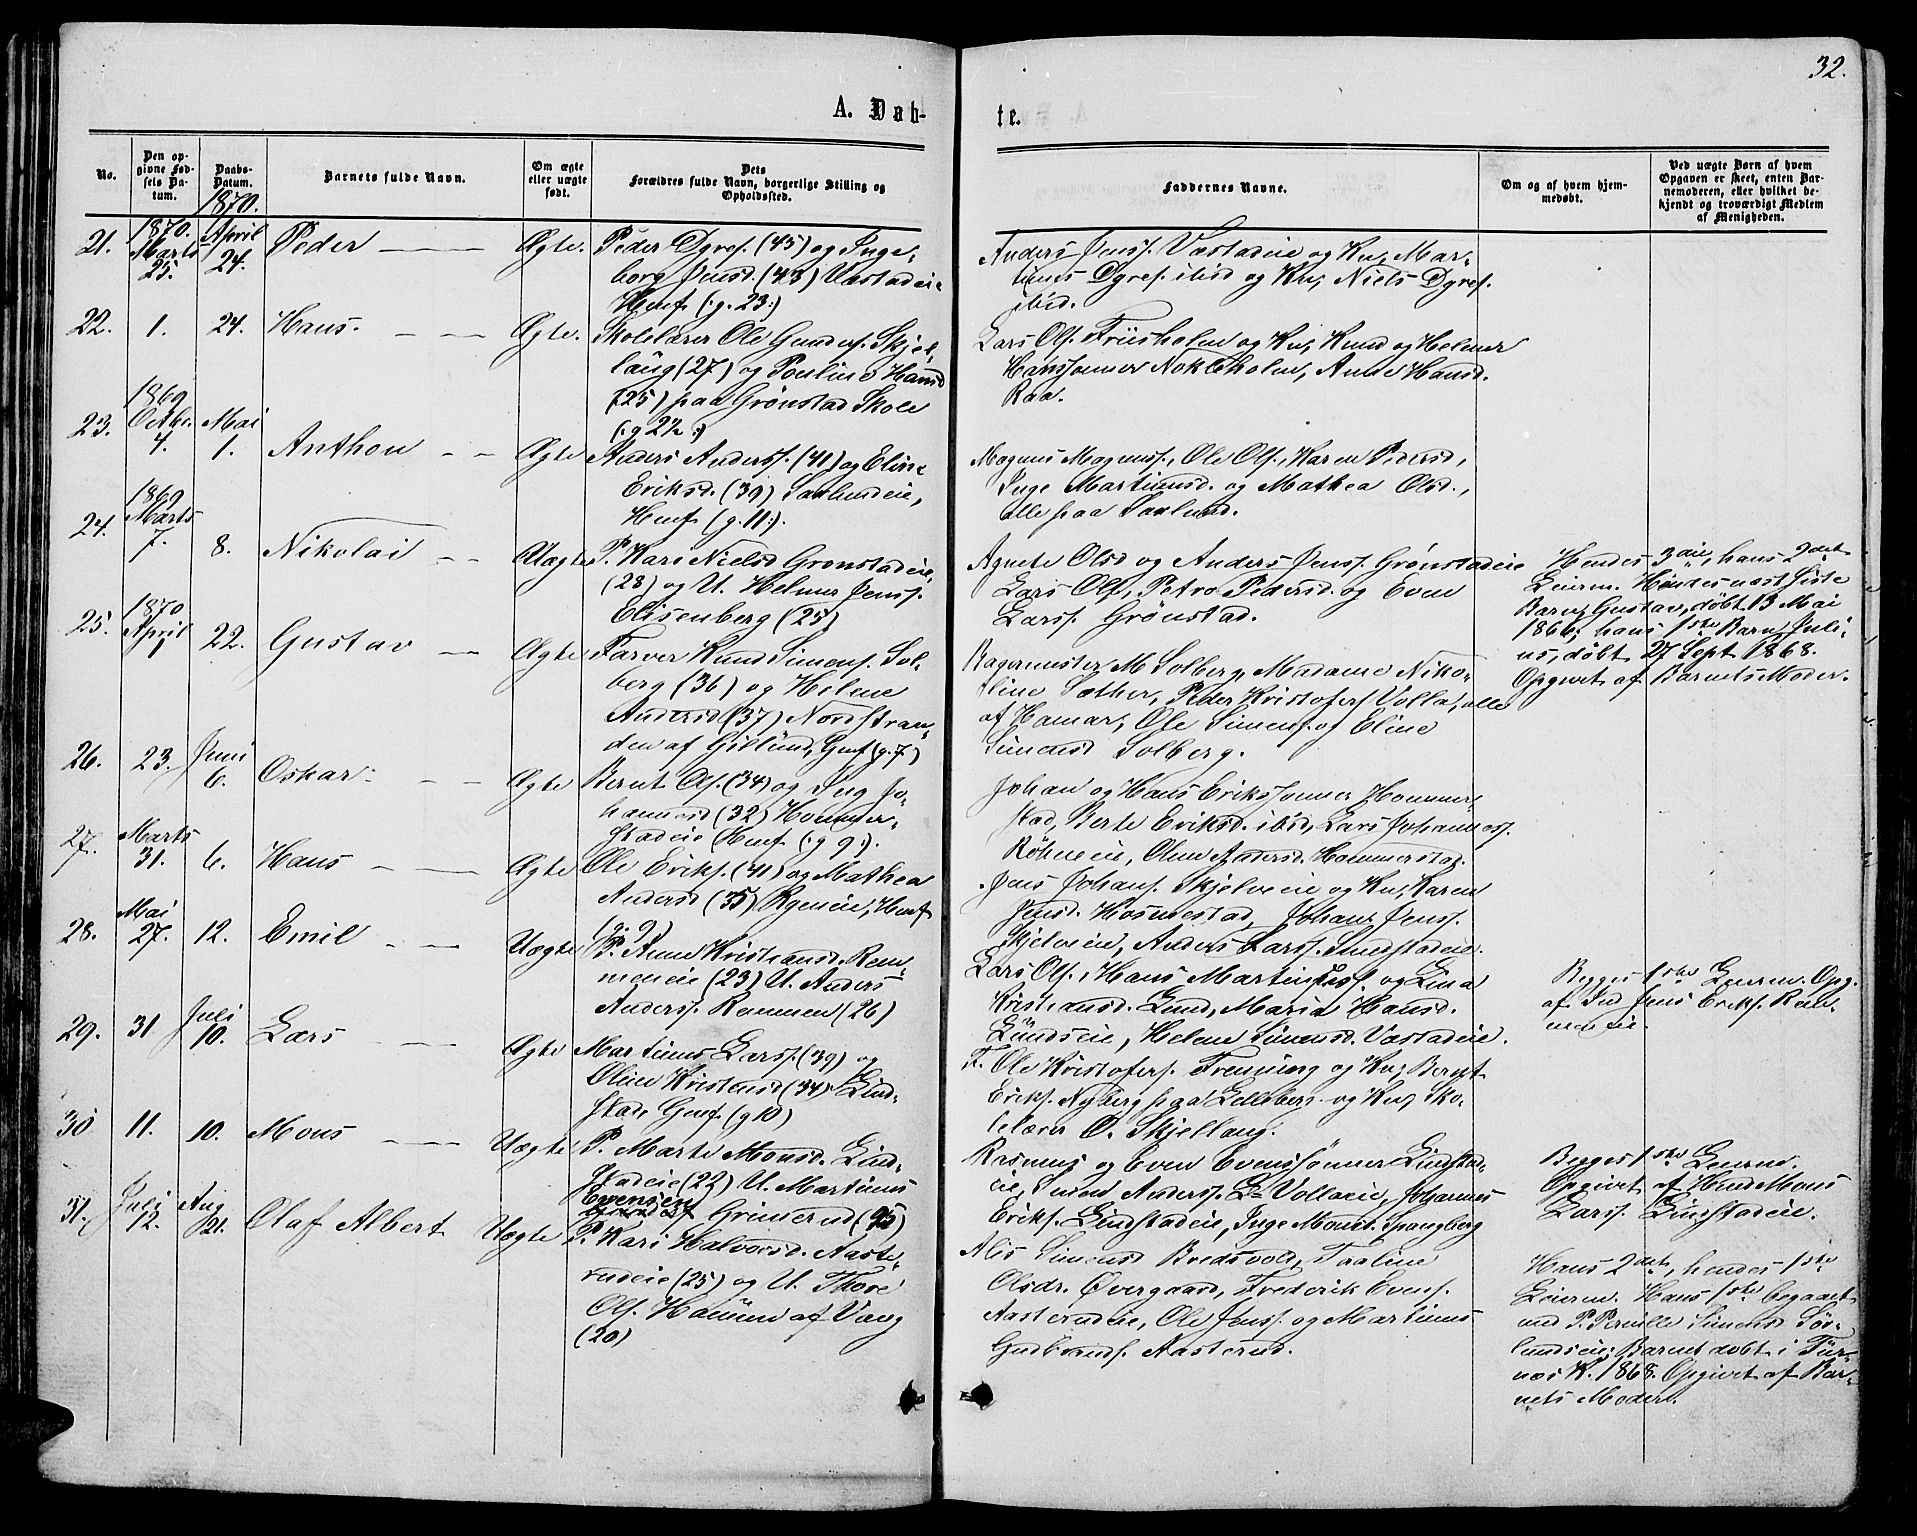 32.
A. Døb-
te.
No.
Den op-
givne Fød-
sels Da-
tum.
Daabs-
Datum.
1870.
Barnets fulde Navn.
Om ægte
eller uægte
født.
Dets
Forældres fulde Navn, borgerlige Stilling og
Opholdssted.
Faddernes Navne.
Om og af hvem hjem-
medøbt.
Ved uægte Børn af hvem
Opgaven er skeet, enten Bar-
nemoderen, eller hvilket be-
kjendt og troværdigt Medlem
af Menigheden.
21.
1870.
Marts
25.
April
24.
Peder
Ægte.
Peder Dyres. (45) og Inge-
borg Jensd. (43) Væstadeie
Hmf (:g. 23:)
Anders Jenss. Væstadeie og Kn, Mar-
tinus Dyres. ibid og Kn, Niels Dyres.
ibid.
22.
1.
24.
Hans.
Ægte.
Skolelærer Ole Gunders. Skjel-
laug (27) og Pouline Hansd
(25) paa Grønstad Skole
(:g 2½:)
Lars Ols. Friisholm og Kn, Knud og Helmer
Hanssønner Nokleholm, Anne Hansd.
Raa.
23.
1869
Octbr.
4.
Mai
1.
Anthon
Ægte
Anders Anderss. (41) og Eline
Eriksd. (39) Saxlundeie,
Hmf (g. 11:).
Magnus Magnuss., Ole Ols., Karen Pedersd,
Inge Martinusd. og Mathea Olsd.,
alle paa Saxlund.
24.
1869
Marts
7.
8.
Nikolai
Uægte
P. Kari Nielsd Grønstadeie,
(28) og U. Helmer Jenss.
Elisenberg (25)
Agnete Olsd og Anders Jenss. Grønstadeie
Lars Ols, Petra Pedersd. og Even
Larss. Grønstad.
Hendes 3die, hans 2det
Leierm. Hendes næst sidste
Barn, Gustav, døbt 13 Mai
1866; hans 1ste Barn, Juli-
us, døbt 27 Sept 1868.
Opgivet af Barnets Moder.
25.
1870
April
1
22.
Gustav
Ægte
Farver Knud Simens. Sol-
berg (36) og Helene
Andersd (37) Nordstran-
den af Gillund, Gmf (g. 7.)
Bagermester M Solberg, Madame Niko-
line Sæther, Peder Kristofers Volla, alle
af Hamar, Ole Simens. og Eline
Simensd Solberg.
26.
23.
Juni
6.
Oskar
Ægte
Bernt Ols. (34) og Ing Jo-
hannesd (32) Hommer-
stadeie Hmf (:g 9:).
Johan og Hans Erikssønner Hommer-
stad, Berte Eriksd. ibid, Lars Johanness.
Røhneie, Oline Andersd. Hommerstad.
27.
Marts
31.
6.
Hans
Ægte
Ole Eriks. (41) og Mathea
Andersd (35) Rgeneie, Hmf
(g. 9)
Jens Johans. Skjelveie og Kn, Karen
Jensd. Hosmestad, Johan Jenss.
Skjelveien, Anders Larss. Sundstadeie.
28.
Mai
27.
12.
Emil
Uægte
P. Anne Kristiansd. Rem-
meneie (23) U. Anders
Anderss. Remmen (26)
Lars Ols., Hans Martinuss. og Lina
Kristiansd. Lund, Maria Hansd.
Lundseie, Helene Simensd. Væstadeie.
Begges 1ste Leierm. Opg.
af Ind Jens Eriks. Rem-
meneie.
29.
31
Juli
10.
Lars
Ægte
Martinus Larss. (39) og
Oline Kristensd (34) Lind-
stad, Gmf. (g 10)
F. Ole Kristofers. Frenning og Kn, Bernt
Eriks. Nyberg paa Lilleberg og Kn, Sko-
lelærer O. Skjellaug.
30
11.
10.
Mons
Uægte
P. Marte Monsd. Lind-
stadeie (22) U. Martinus
Evensen
Grimerud (25)
Rasmus og Even Evenssønner Lindstad-
eie, Simen Anderss. Lr Vollaeie, Johannes
Eriks. Lindstadeie, Inge Monsd. Spangberg
Begges 1ste Leierm.
Opgivet af Hmd Mons
Larss. Lindstadeie.
31.
Juli
12.
Aug
21.
Olaf Albert
Uægte
P. Kari Halvorsd. Aaste-
rudeie (25) og U. Thore
Ols. Hammen af Vang
(20)
Alis Simensd Bredsvold, Taaline
Olsdr. Øvergaard, Frederik Evens.
Aasterudeie, Ole Jenss. og Martinus
Gudbrands. Aasterud.
Hans 2det, hendes 1ste
Leierm. Hans 1ste begaaet
med P. Pernille Simensd Søs-
lundseie; Barnet døbt i Fur-
nes K. 1868. Opgivet af Bar-
nets Moder.